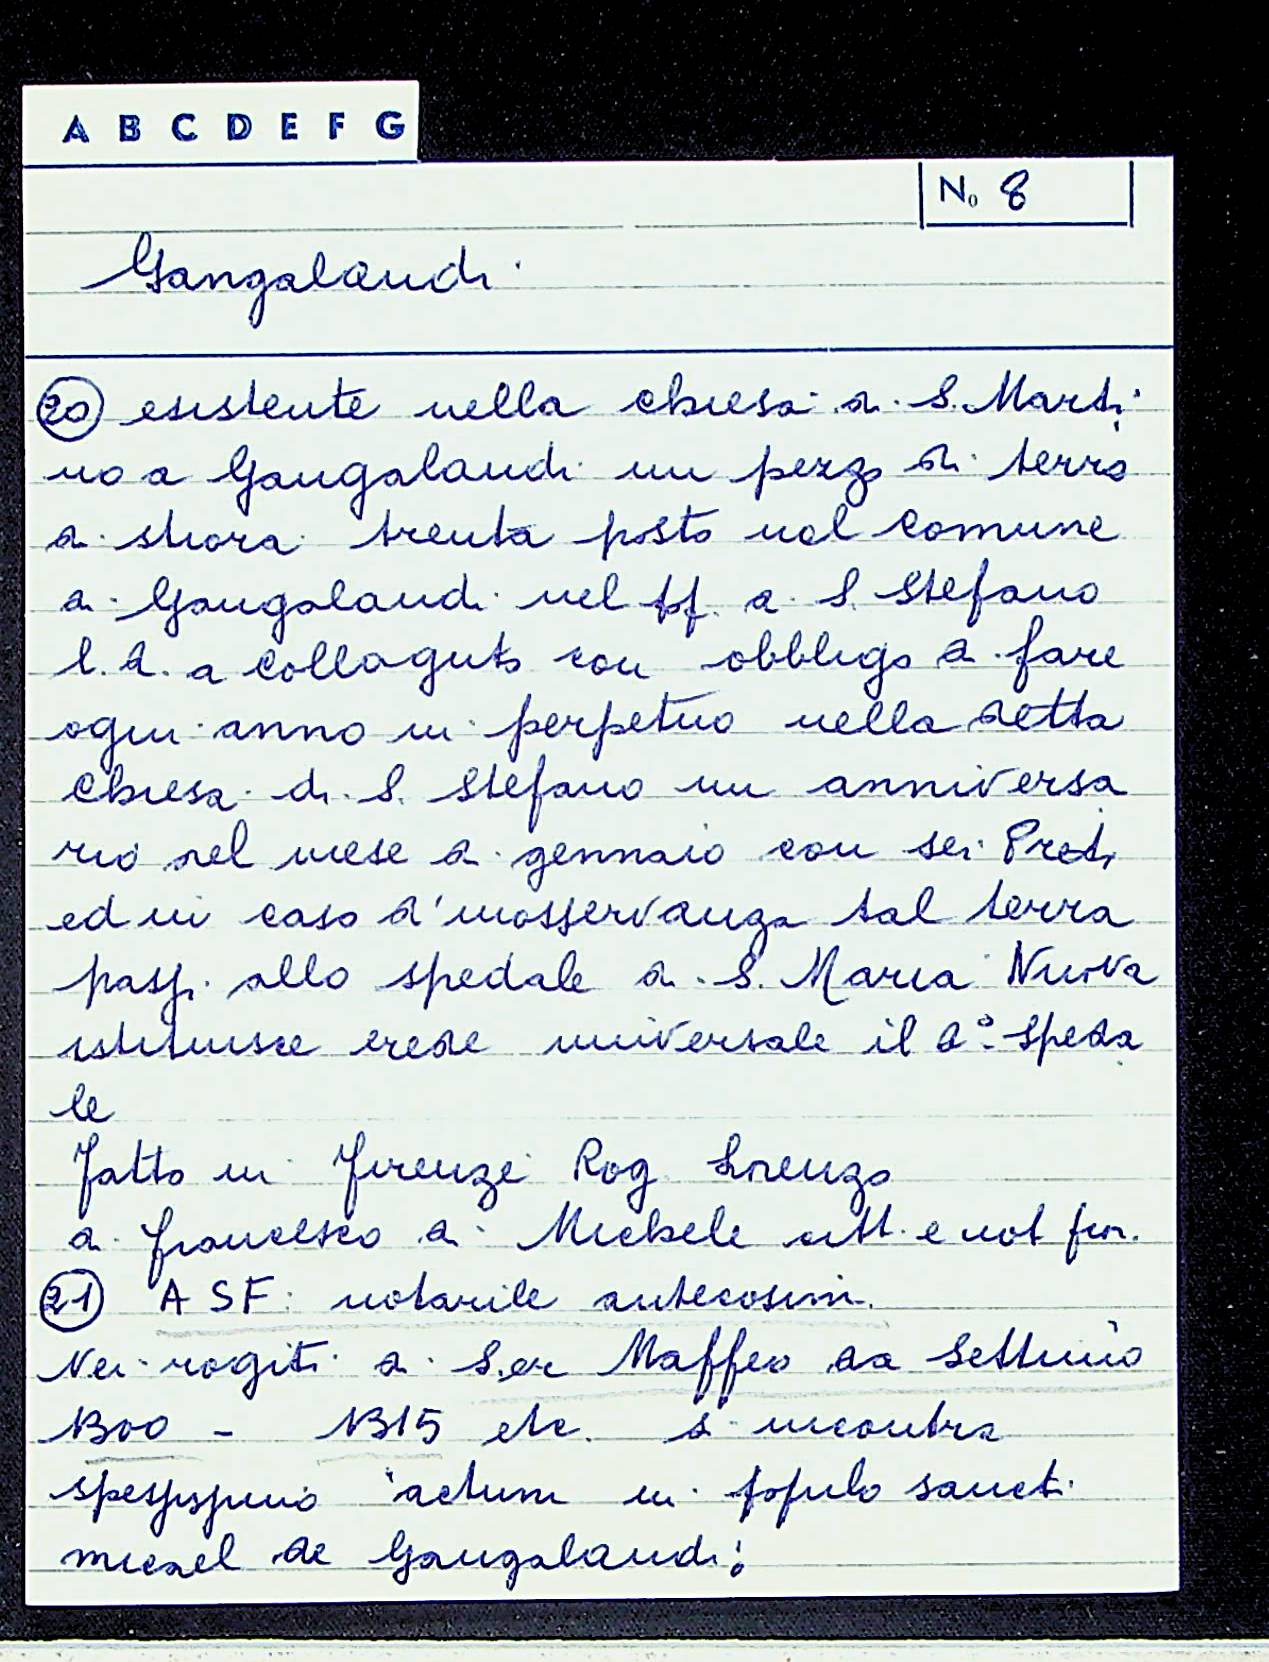 A B C D E F G
No 8
Gangalandi
20 esistente nella chiesa di S. Marti
no a Gangalandi un pezzo di terra
di stiora trenta posto nel comune
di Gangalandi nel pp. di S. Stefano
l. d. a Collaguto con obbligo di fare
ogni anno in perpetuo nella detta
chiesa di S. Stefano un anniversa
rio nel mese di gennaio con sei Preti
ed in caso d'inosservanza tal terra
passi allo spedale di S. Maria Nuova
istituisce erede universale il do speda
le
Fatto in Firenze Rog Lorenzo
di Francesco di Michele citt. e not fior.
21 ASF: notarile antecosim.
Nei rogiti di Ser Maffeo da Settimo
1300 - 1315 etc. si incontra
spessissimo "actum in populo sancti
micael de Gangalandi"